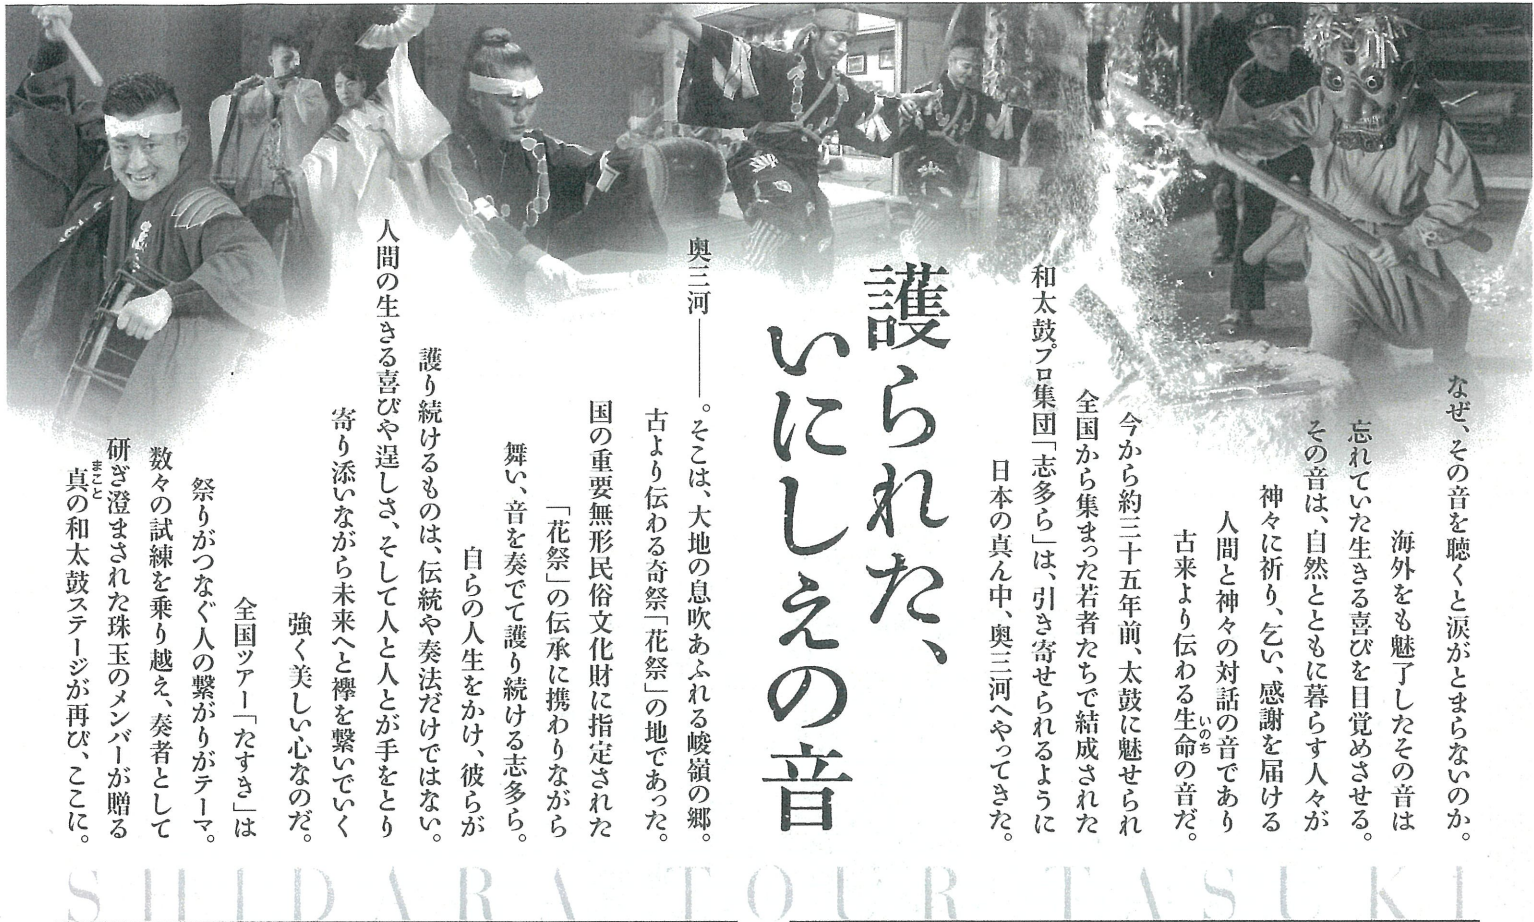 なぜ、その音を聴くと涙がとまらないのか。
海外をも魅了したその音は
忘れていた生きる喜びを目覚めさせる。
その音は、自然とともに暮らす人々が
神々に祈り、乞い、感謝を届ける
人間と神々の対話の音であり
古来より伝わる生命の音だ。
いのち
今から約三十五年前、太鼓に魅せられ
全国から集まった若者たちで結成された
和太鼓プロ集団「志多ら」は、引き寄せられるように
日本の真ん中、奥三河へやってきた。
護られた、
いにしえの音
奥三河───。そこは、大地の息吹あふれる峻嶺の郷。
古より伝わる奇祭「花祭」の地であった。
国の重要無形民俗文化財に指定された
「花祭」の伝承に携わりながら
舞い、音を奏でて護り続ける志多ら。
自らの人生をかけ、彼らが
護り続けるものは、伝統や奏法だけではない。
人間の生きる喜びや逞しさ、そして人と人とが手をとり
寄り添いながら未来へと襷を繋いでいく
強く美しい心なのだ。
全国ツアー「たすき」は
祭りがつなぐ人の繋がりがテーマ。
数々の試練を乗り越え、奏者として
研ぎ澄まされた珠玉のメンバーが贈る
まこと
真の和太鼓ステージが再び、ここに。
SHIDARA TOUR TASUKI